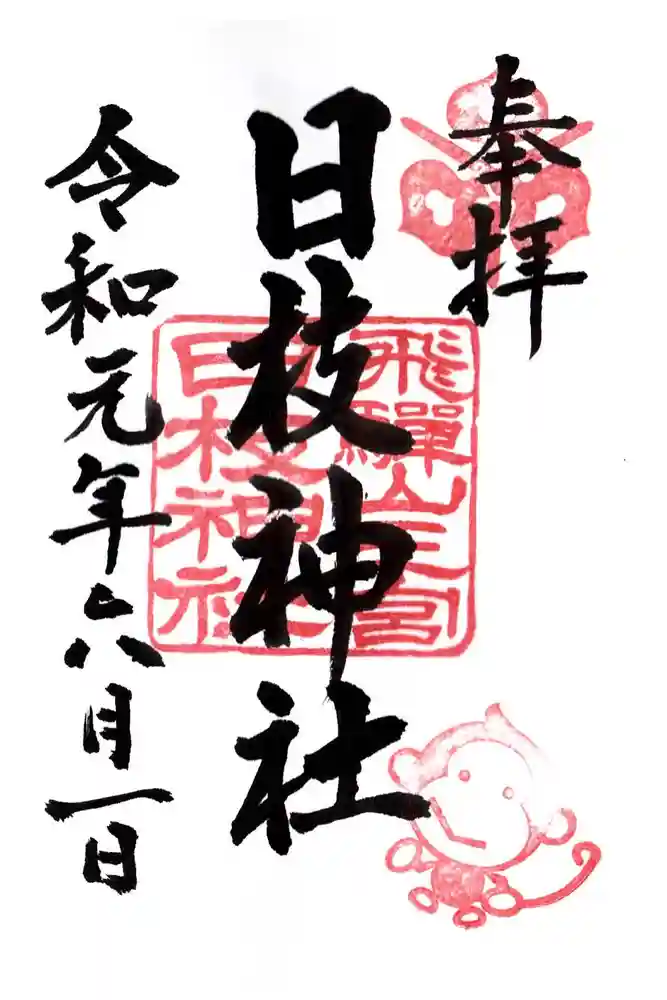 奉拝
飛騨山王宮
日枝神社
日枝神社
令和元年六月一日